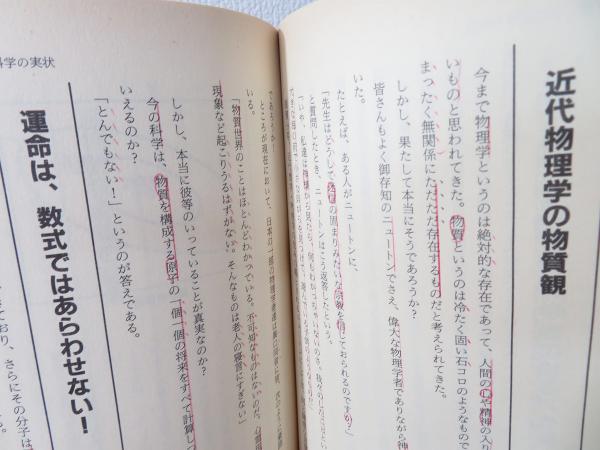 近代物理学の物質観
今まで物理学というのは絶対的な存在であって、人間の心や精神の入り
いものと思われてきた。物質というのは冷たく固い石コロのようなもので
まったく無関係にただただ存在するものだと考えられてきた。
しかし、果たして本当にそうであろうか？
皆さんもよく御存知のニュートンでさえ、偉大な物理学者でありながら神
いた。
たとえば、ある人がニュートンに、
「先生はどうして迷信の固まりみたいな宗教を信じておられるのですか？」
と質問したとき、ニュートンはこう返答したという。
「いや、私達は神様から見たら、何もわかっちゃいないのさ。
であろうか！
ところが現在において、日本の一部の物理学者達は
いる。
「物質世界のことはほとんどわかっている。不可知なものはないのだ。心霊
現象など起こりうるはずがない。そんなものは老人の寝言にすぎない」
しかし、本当に彼等のいっていることが真実なのか？
今の科学は、物質を構成する原子の一個一個の将来をすべて計算して
いえるのか？
「とんでもない！」というのが答えである。
運命は、数式ではあらわせない！
ており、さらにその分子は
科学の実状